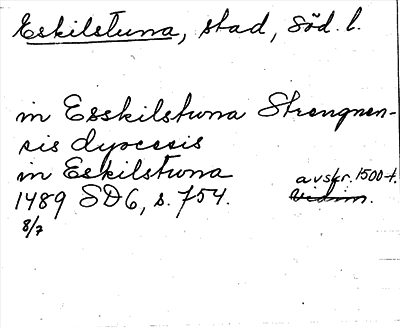 Eskilstuna, stad, Söd. l.
in Esskilstuna Strengnen-
sis dyocesis
in Eskilstuna
avskr. 1500-t.
1489 SD6, s. 754.
Vidim.
8/7